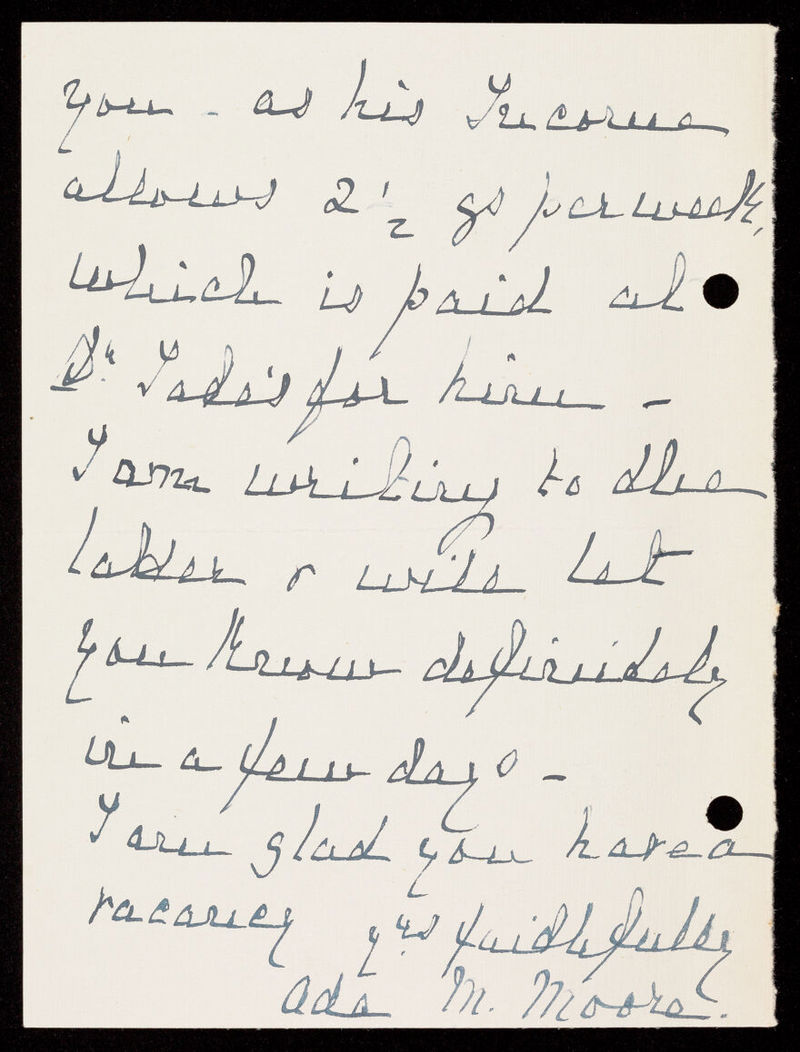 you - as his Income
allows 2 1/2 gs per week,
which is paid at
Dr. Tade's for him -
I am writing to the
latter & will let
you know definitely
in a few days -
I am glad you have a
vacancy yrs faithfully
Ada M. Moore.